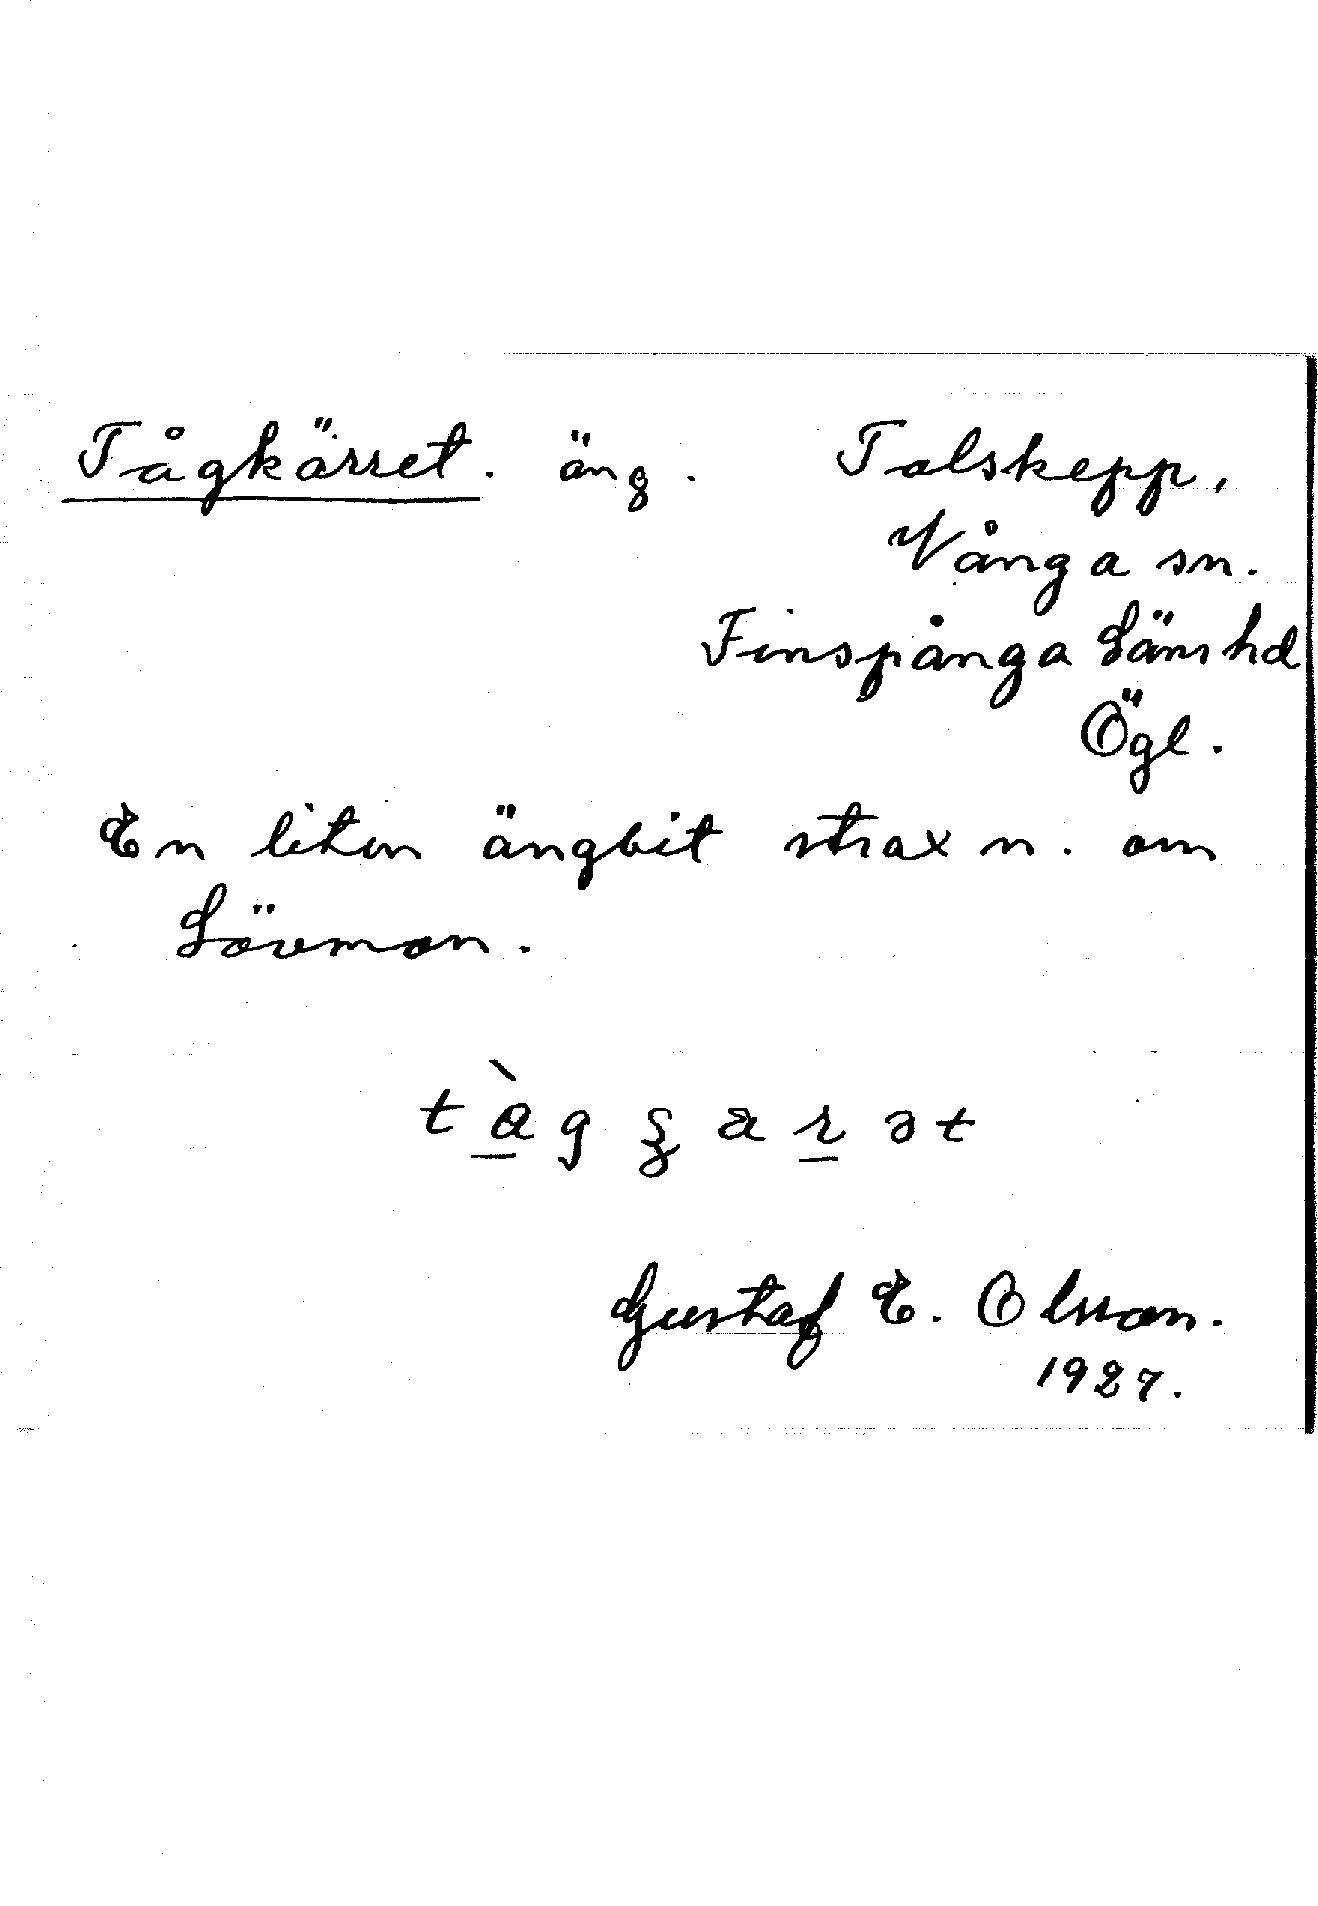 Tågkärret. äng. Tolskepp,
Vånga sn.
Finspånga Läns hd
Ögl.
En liten ängbit strax n. om
Lövmon.
Gustaf E. Olsson.
1927.